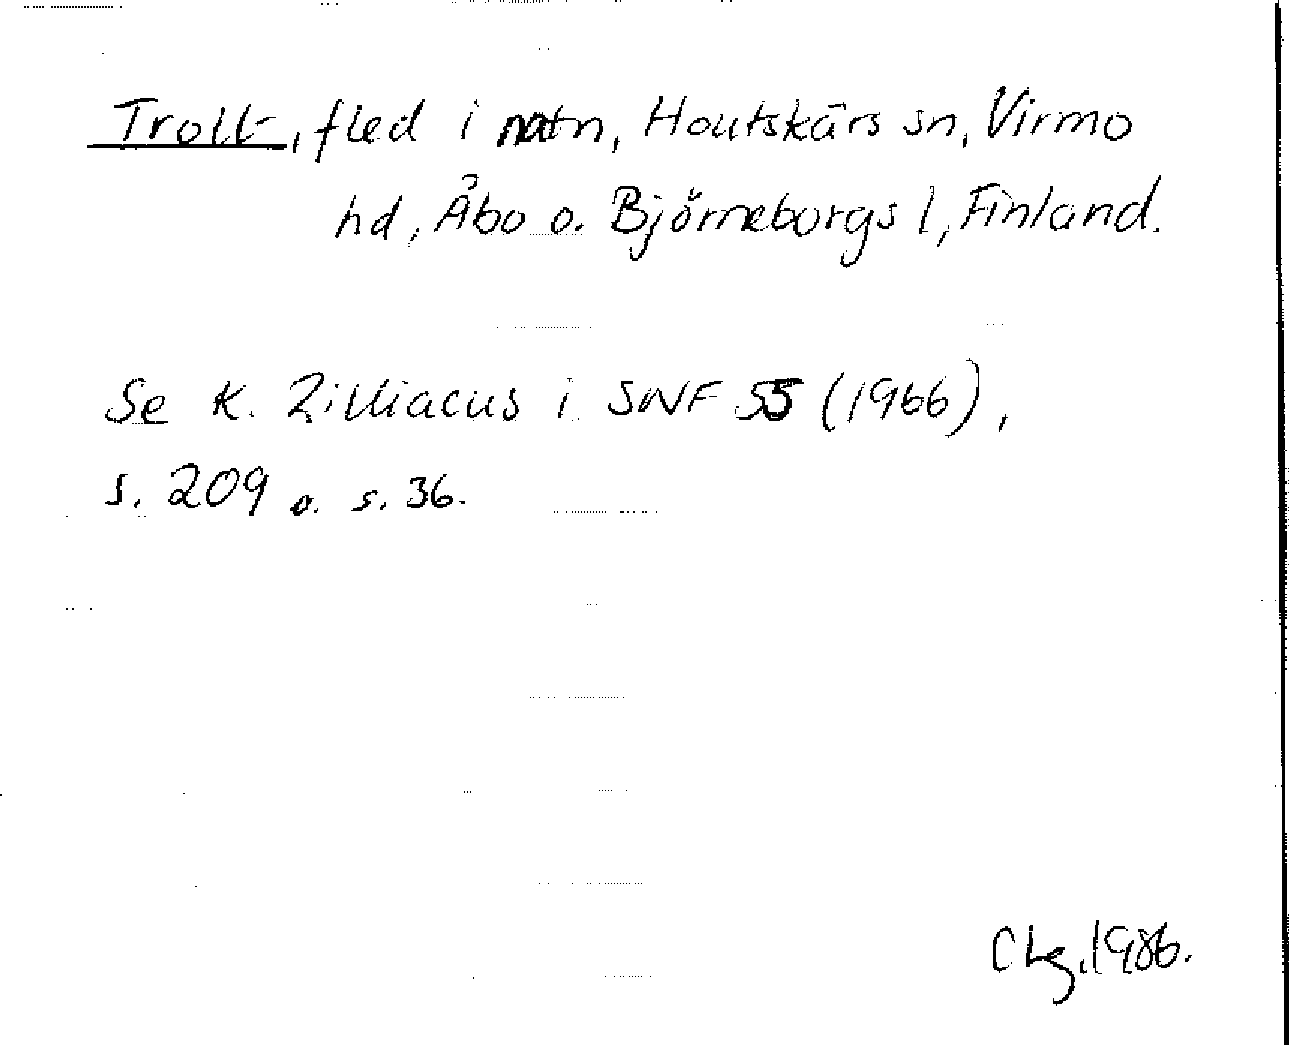 Troll-, fled i natn, Houtskärs sn, Virmo
hd, Åbo o. Björneborgs l, Finland.
Se K. Zilliacus i SNF 55 (1966),
s. 209 o. s. 36.
CLg, 1986.